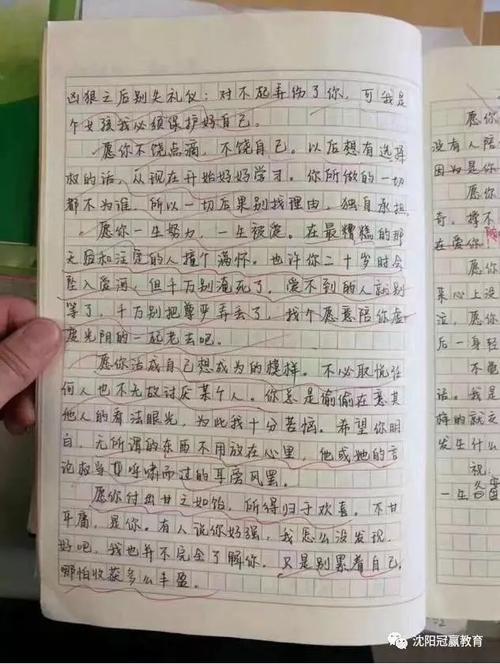 凶狠之后别失礼仪：对不起弄伤了你，可我是
个女孩我必须保护好自己。
愿你不饶点滴，不饶自己。以后想有选择
权的话，从现在开始好好学习。你所做的一切
都不为谁，所以一切后果别找理由，独自承担
愿你一生努力，一生被爱。在最糟糕的那
天后和注定的人撞个满怀。也许你二十岁时会
坠入爱河，但千万别淹死了。爱不到的人就别
等了，千万别把尊严弄丢了，找个愿意陪你虚
度光阴的一起老去吧。
愿你活成自己想成为的模样。不必取悦任
何人也不无故讨厌某个人。你总是偷偷在意其
他人的看法眼光，为此我十分苦恼。希望你明
白，无所谓的东西不用放在心里，他或她的言
论权当呼啸而过的耳旁风罢。
愿你付出甘之如饴，所得归于欢喜。不甘
平庸，是你。有人说你好强，我怎么没发现
好吧，我也并不完全了解你。只是别累着自己，
哪怕收获多么丰盈。
愿你
没有人陪
因为是你
愿你
在爱你
愿
后一身轻
话。我是
发生什么
祝
一生
沈阳冠赢教育